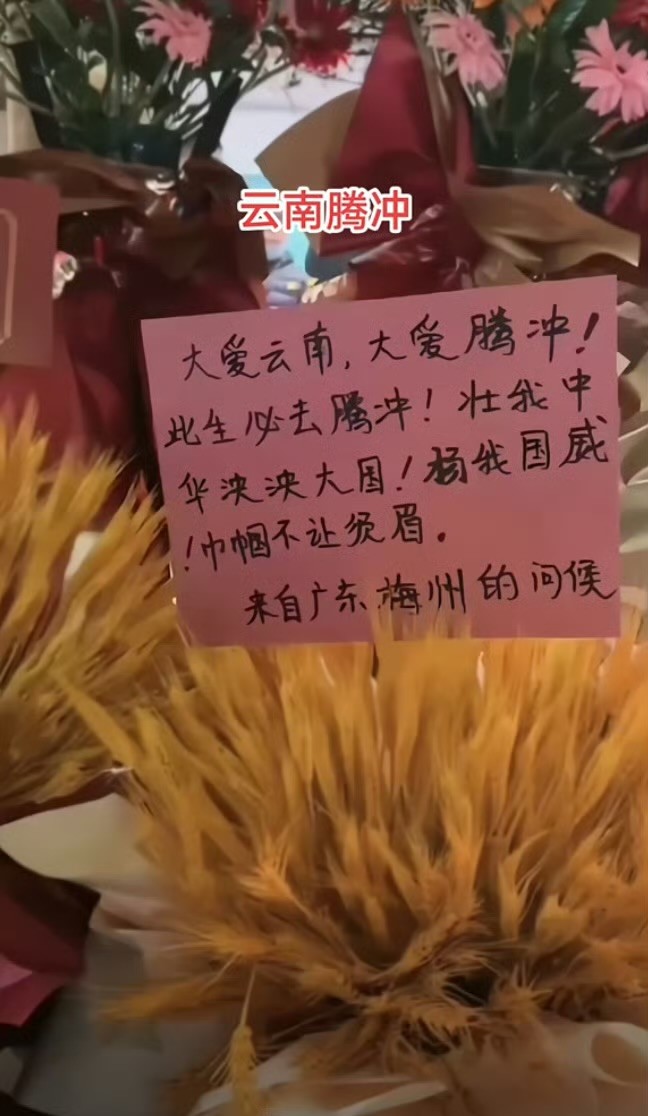 云南腾冲
大爱云南,大爱腾冲!
此生必去腾冲!壮我中
华泱泱大国!扬我国威
!巾帼不让须眉。
来自广东梅州的问候